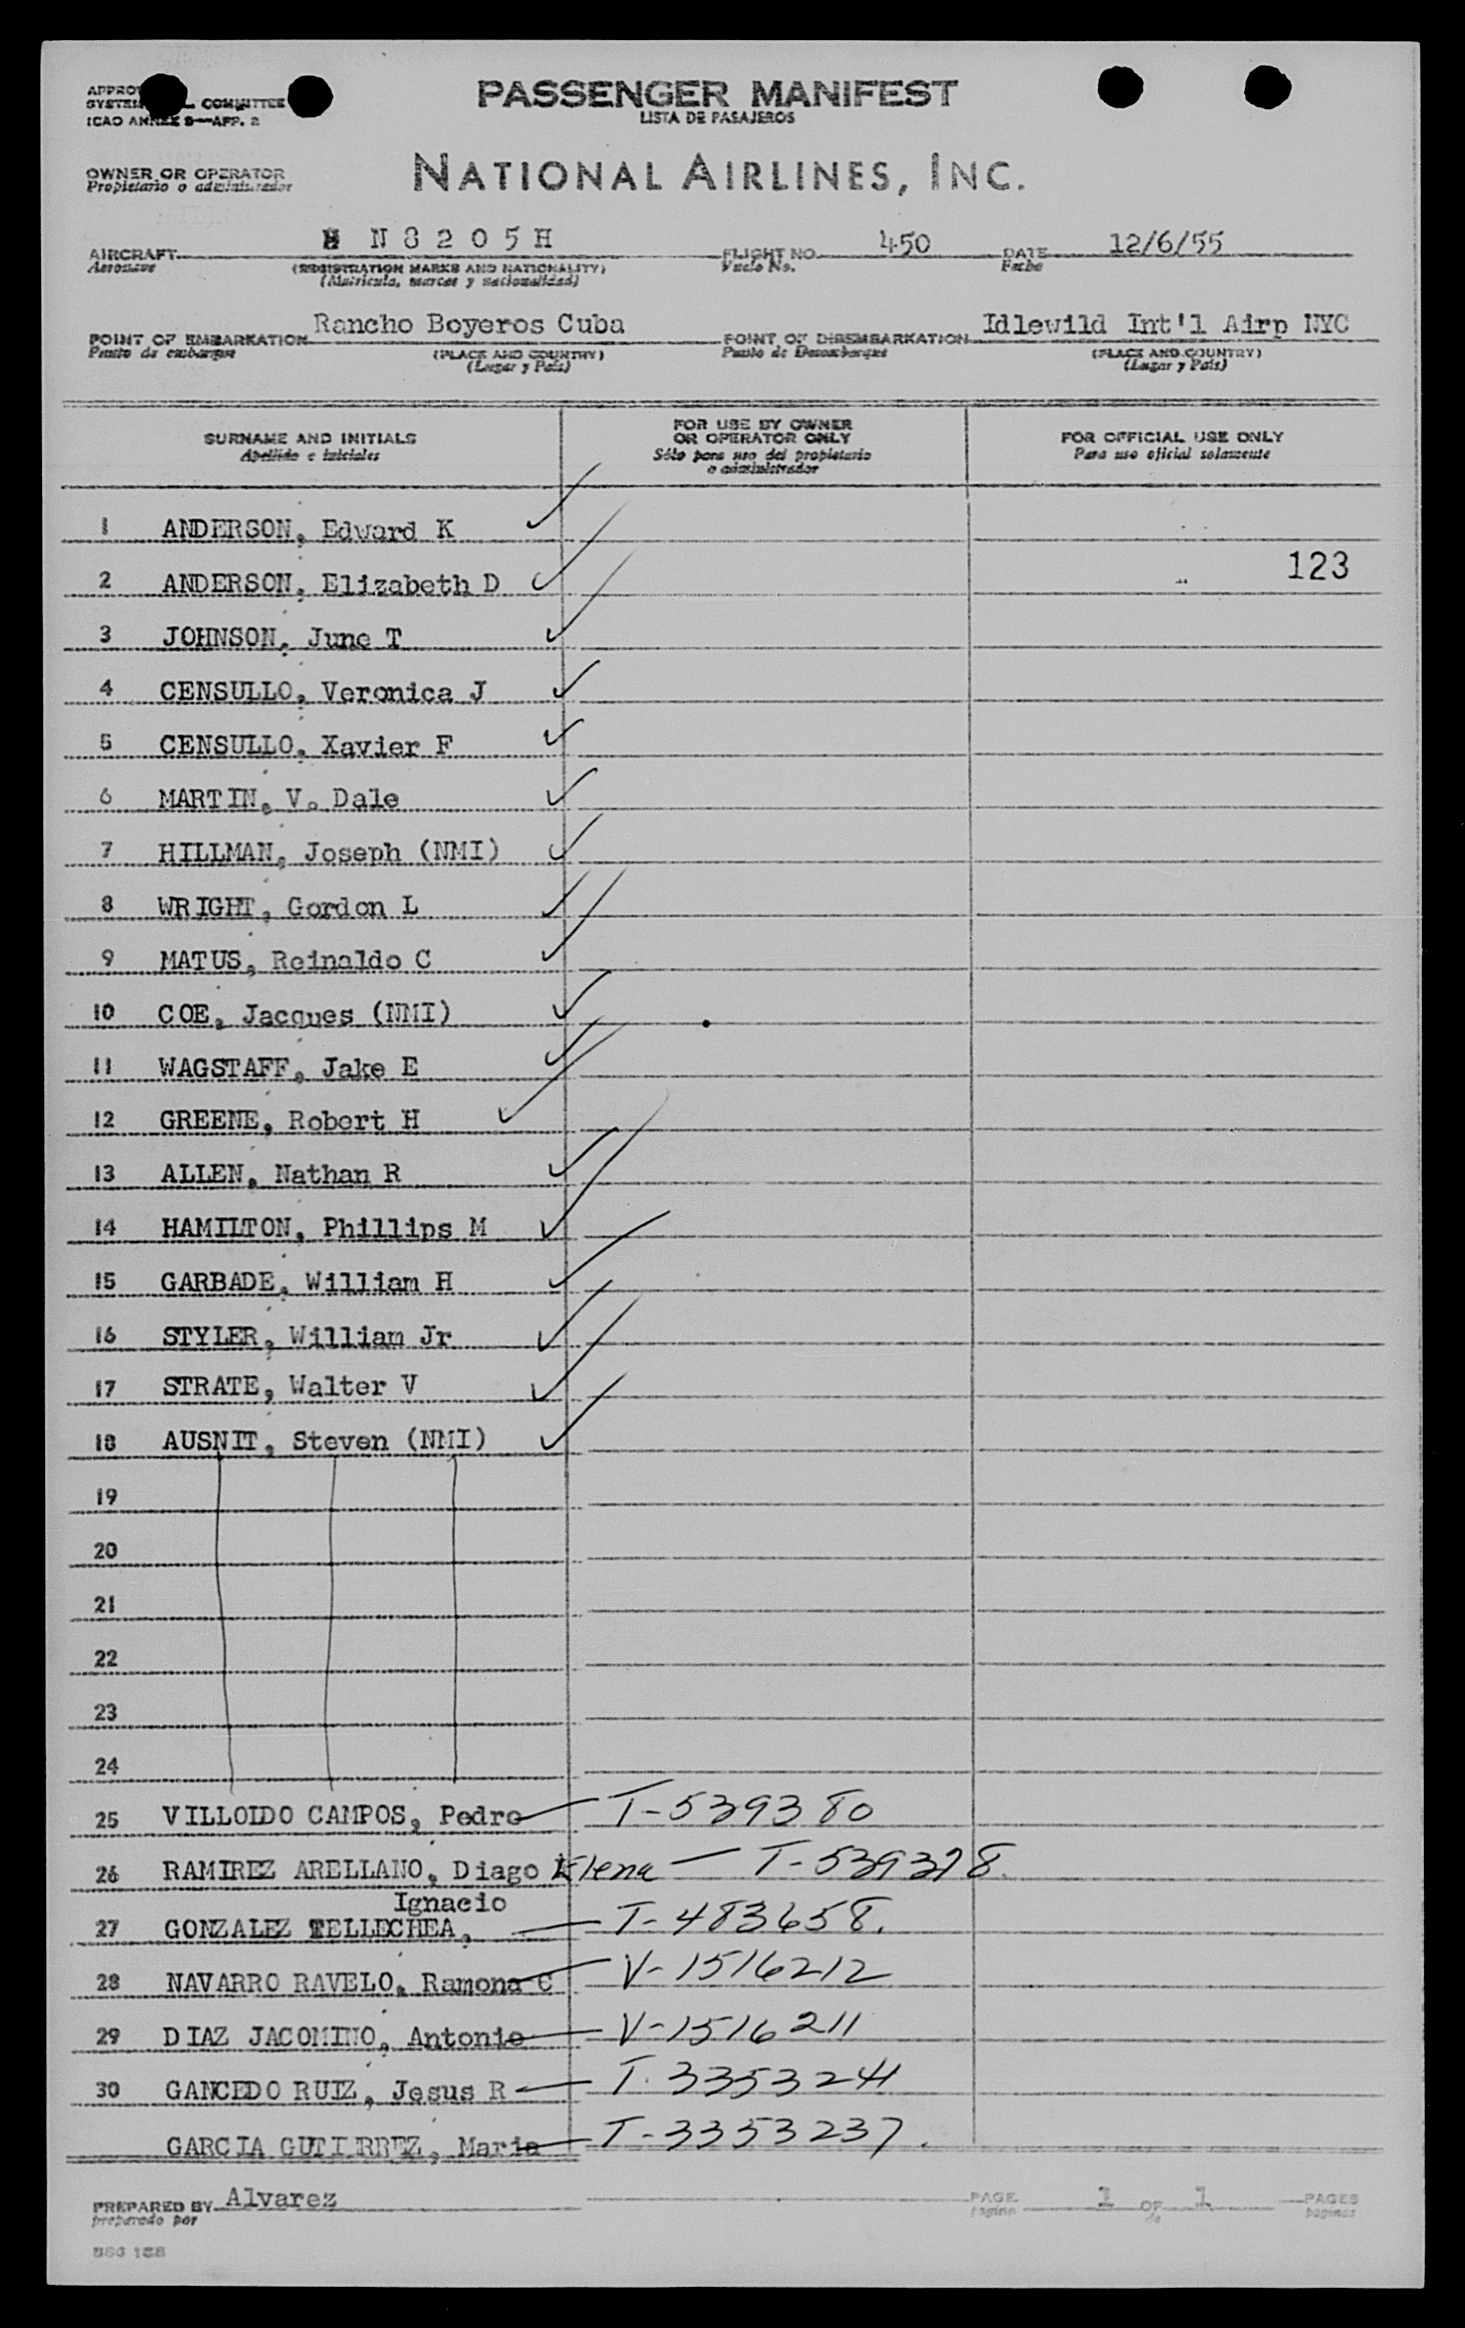 PASSENGER MANIFEST
LISTA DE PASAJEROS
COMMITTEE
ICAO ANNEX 9—APP. 2
OWNER OR OPERATOR
Propietario o administrador
NATIONAL AIRLINES, INC.
AIRCRAFT N 8 2 0 5 H FLIGHT NO. 450 DATE 12/6/55
Aeronave (REGISTRATION MARKS AND NATIONALITY) Vuelo No. Fecha
(Matricula, marcas y nacionalidad)
POINT OF EMBARKATION Rancho Boyeros Cuba POINT OF DISEMBARKATION Idlewild Int'l Airp NYC
Punto de embarque (PLACE AND COUNTRY) Punto de Desembarque (PLACE AND COUNTRY)
(Lugar y País) (Lugar y País)
SURNAME AND INITIALS FOR USE BY OWNER OR OPERATOR ONLY FOR OFFICIAL USE ONLY
Apellido e iniciales Sólo para uso del propietario o administrador Para uso oficial solamente
1 ANDERSON, Edward K
2 ANDERSON, Elizabeth D 123
3 JOHNSON, June T
4 CENSULLO, Veronica J
5 CENSULLO, Xavier F
6 MARTIN, V. Dale
7 HILLMAN, Joseph (NMI)
8 WRIGHT, Gordon L
9 MATUS, Reinaldo C
10 COE, Jacques (NMI)
11 WAGSTAFF, Jake E
12 GREENE, Robert H
13 ALLEN, Nathan R
14 HAMILTON, Phillips M
15 GARBADE, William H
16 STYLER, William Jr
17 STRATE, Walter V
18 AUSNIT, Steven (NMI)
19
20
21
22
23
24
25 VILLOIDO CAMPOS, Pedro T-539380
26 RAMIREZ ARELLANO, Diago Elena — T-539378.
Ignacio
27 GONZALEZ TELLECHEA, — T-483658.
28 NAVARRO RAVELO, Ramona C V-1516212
29 DIAZ JACOMINO, Antonio V-1516211
30 GANCEDO RUIZ, Jesus R — T. 3353241
GARCIA GUTIRREZ, Maria — T-3353237.
PREPARED BY Alvarez PAGE 1 OF 1 PAGES
preparado por página de páginas